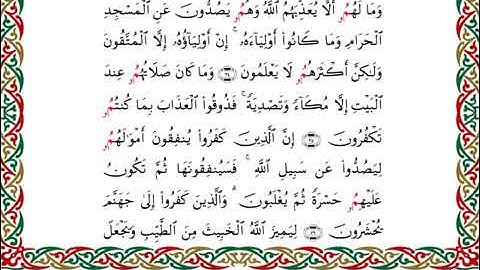 وَمَا لَهُمُۥٓ أَلَّا يُعَذِّبَهُمُ ٱللَّهُ وَهُمُۥ يَصُدُّونَ عَنِ ٱلْمَسْجِدِ
ٱلْحَرَامِ وَمَا كَانُوٓا۟ أَوْلِيَآءَهُۥٓ ۚ إِنْ أَوْلِيَآؤُهُۥٓ إِلَّا ٱلْمُتَّقُونَ
وَلَٰكِنَّ أَكْثَرَهُمُۥ لَا يَعْلَمُونَ ۝ وَمَا كَانَ صَلَاتُهُمُۥ عِندَ
ٱلْبَيْتِ إِلَّا مُكَآءً وَتَصْدِيَةً ۚ فَذُوقُوا۟ ٱلْعَذَابَ بِمَا كُنتُمُۥ
تَكْفُرُونَ ۝ إِنَّ ٱلَّذِينَ كَفَرُوا۟ يُنفِقُونَ أَمْوَٰلَهُمُۥ
لِيَصُدُّوا۟ عَن سَبِيلِ ٱللَّهِ ۚ فَسَيُنفِقُونَهَا ثُمَّ تَكُونُ
عَلَيْهِمُۥ حَسْرَةً ثُمَّ يُغْلَبُونَ ۗ وَٱلَّذِينَ كَفَرُوٓا۟ إِلَىٰ جَهَنَّمَ
يُحْشَرُونَ ۝ لِيَمِيزَ ٱللَّهُ ٱلْخَبِيثَ مِنَ ٱلطَّيِّبِ وَيَجْعَلَ